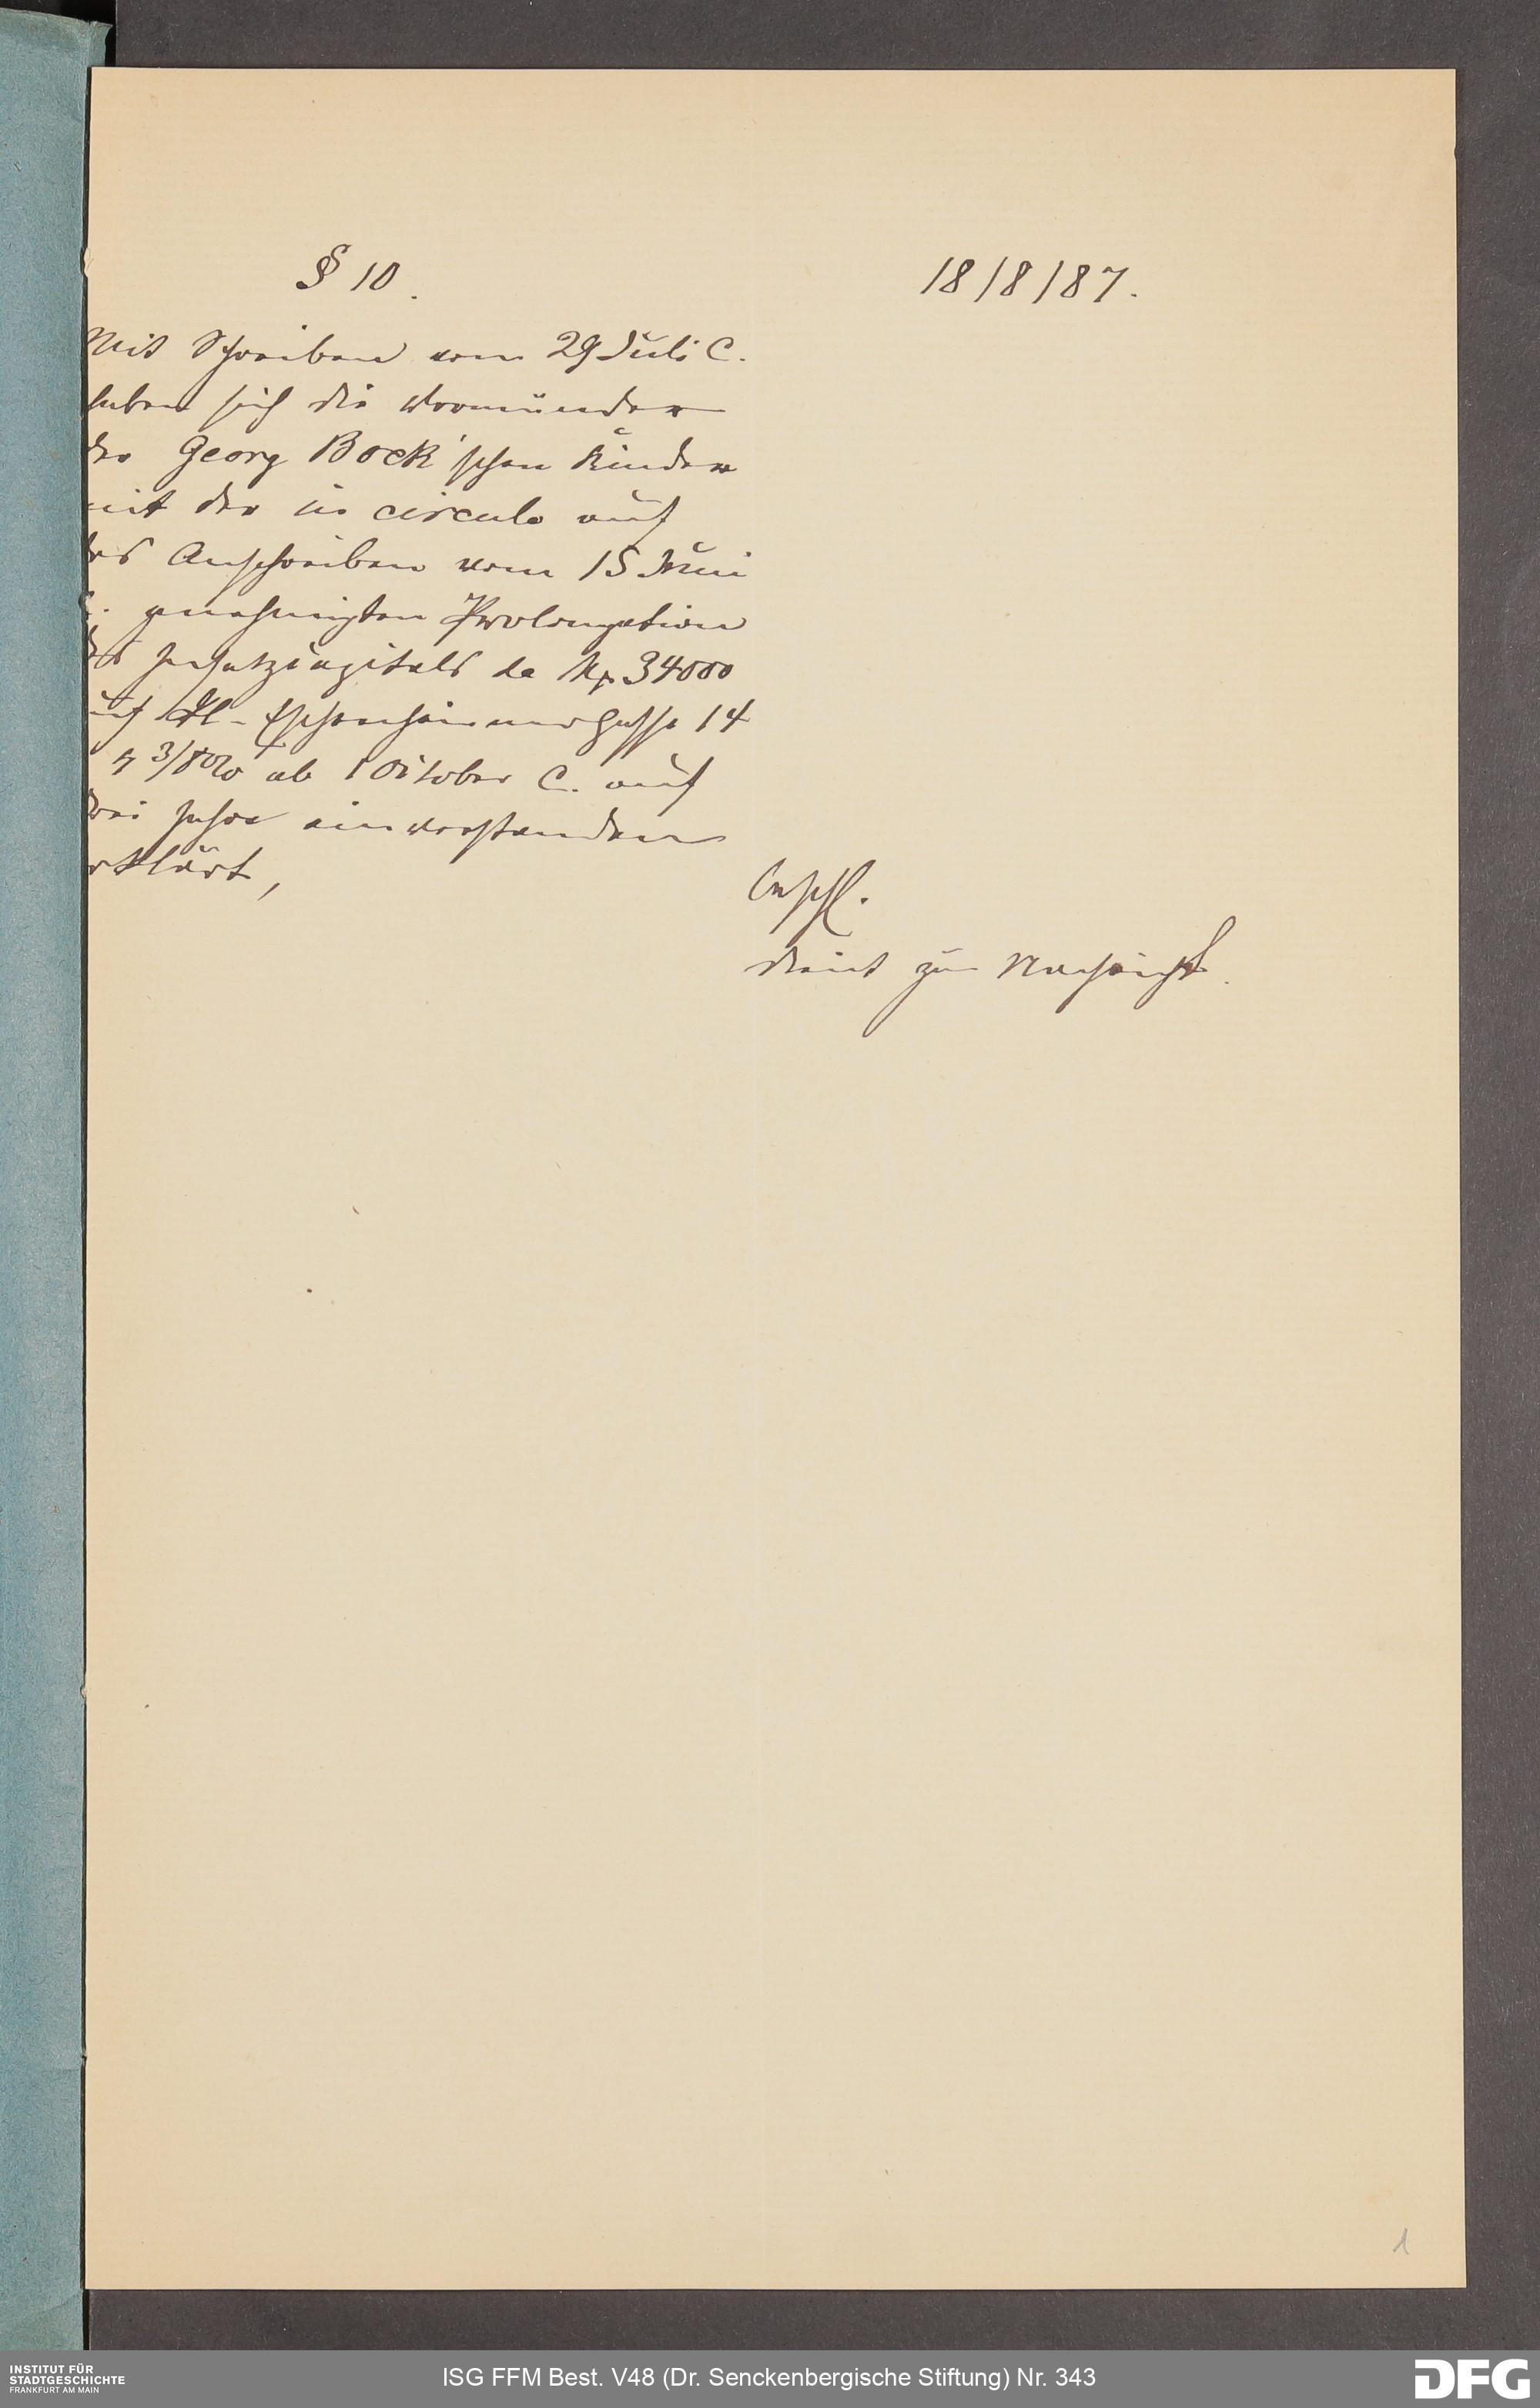 § 10.
18/8/87.
Mit Schreiben vom 29 Juli c.
haben sich die Vormünder
der Georg Bock'schen Kinder
mit der in circulo auf
das Anschreiben vom 15 Juni
c. genehmigten Prolongation
des Insatzcapitals de Mk 34000
auf Kl. Eschenheimergasse 14
3/8% ab 1 October c. auf
drei Jahre einverstanden
erklärt,
Beschl.
dient zur Nachricht.
1
INSTITUT FÜR
STADTGESCHICHTE
FRANKFURT AM MAIN
ISG FFM Best. V48 (Dr. Senckenbergische Stiftung) Nr. 343
DFG